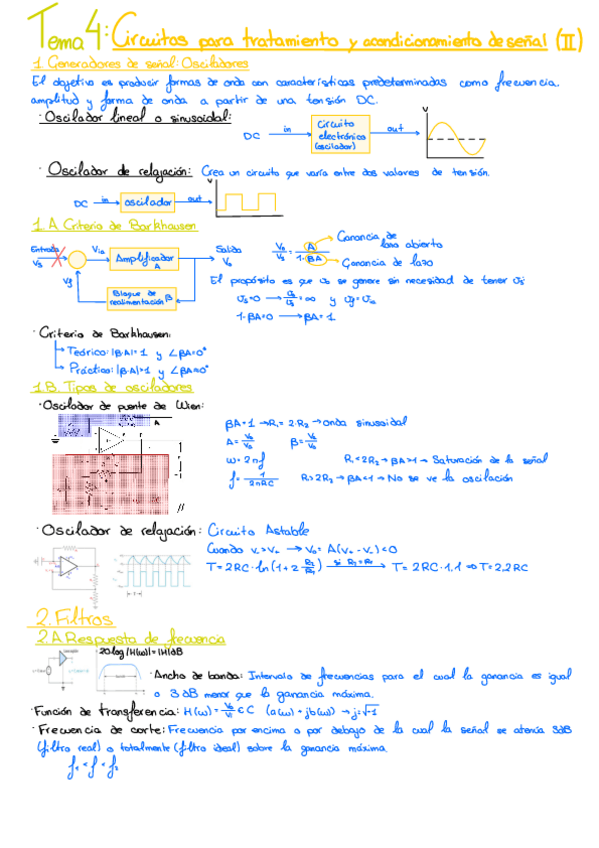 Tema 4: Circuitos para tratamiento y acondicionamiento de señal (II)
1. Generadores de señal: Osciladores
El objetivo es producir formas de onda con características predeterminadas como frecuencia,
amplitud y forma de onda a partir de una tensión DC.
· Oscilador lineal o sinusoidal:
DC in Circuito electrónico (oscilador) out V
· Oscilador de relajación: Crea un circuito que varía entre dos valores de tensión.
DC in oscilador out V
1.A Criterio de Barkhausen
Entrada Vs Vin Amplificador A Salida Vo
Vf Bloque de realimentación β
Vo/Vs = A/1-βA
Ganancia de lazo abierto
Ganancia de lazo
El propósito es que
se genere sin necesidad de tener
1-βA=0 → βA=1
· Criterio de Barkhausen:
Teórico: |β·A|=1 y ∠βA=0°
Práctico: |β·A|>1 y ∠βA=0°
1.B. Tipos de osciladores
· Oscilador de puente de Wien:
A
βA=1 → R1=2·R2 → onda sinusoidal
ω=2πf
R1<2R2 → βA>1 → Saturación de la señal
f=1/2πRC
R1>2R2 → βA<1 → No se ve la oscilación
· Oscilador de relajación: Circuito Astable
Cuando V->V+ → Vo=A(V+-V-)<0
T=2RC·ln(1+2 R2/R1) → T=2RC·1.1 ⇒ T=2.2RC
2. Filtros
2.A. Respuesta de frecuencia
20log|H(ω)|=|H|dB
· Ancho de banda: Intervalo de frecuencias para el cual la ganancia es igual
o 3dB menor que la ganancia máxima.
· Función de transferencia: H(ω)=Vo/Vi ∈ C (a(ω)+jb(ω) → j=√-1
· Frecuencia de corte: Frecuencia por encima o por debajo de la cual la señal se atenúa 3dB
(filtro real) o totalmente (filtro ideal) sobre la ganancia máxima.
f1<f<f2